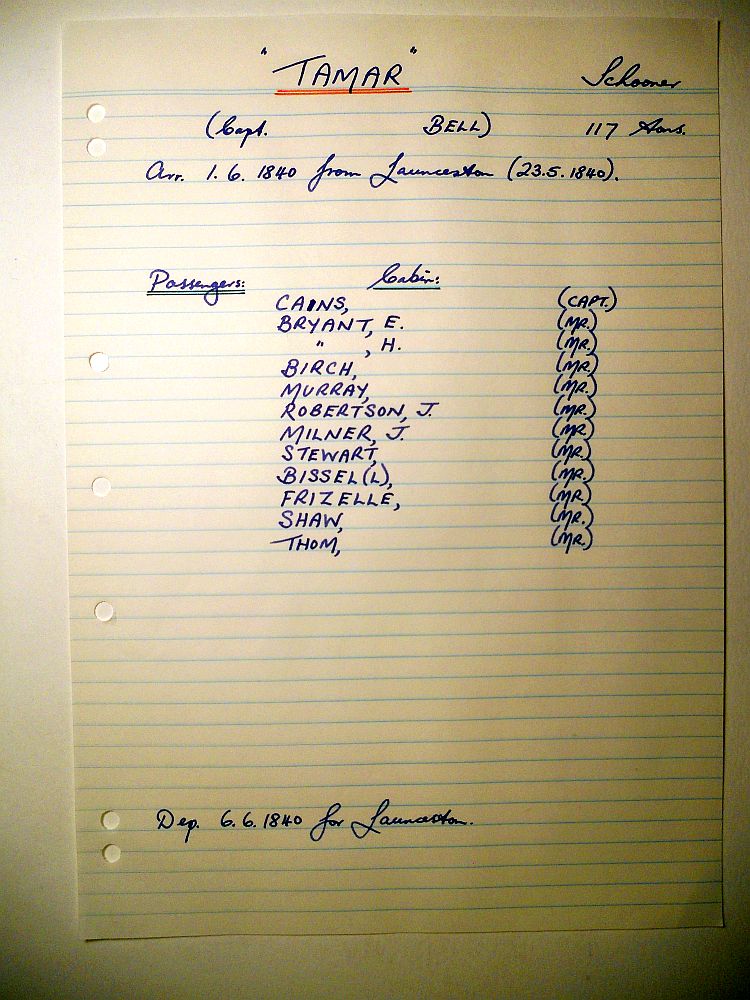 "TAMAR" Schooner
(Capt. BELL) 117 tons.
Arr. 1.6.1840 from Launceston (23.5.1840).
Passengers: Cabin:
CAINS, (CAPT.)
BRYANT, E. (MR.)
" , H. (MR.)
BIRCH, (MR.)
MURRAY, (MR.)
ROBERTSON, J. (MR.)
MILNER, J. (MR.)
STEWART, (MR.)
BISSEL(L), (MR.)
FRIZELLE, (MR.)
SHAW, (MR.)
THOM, (MR.)
Dep. 6.6.1840 for Launceston.